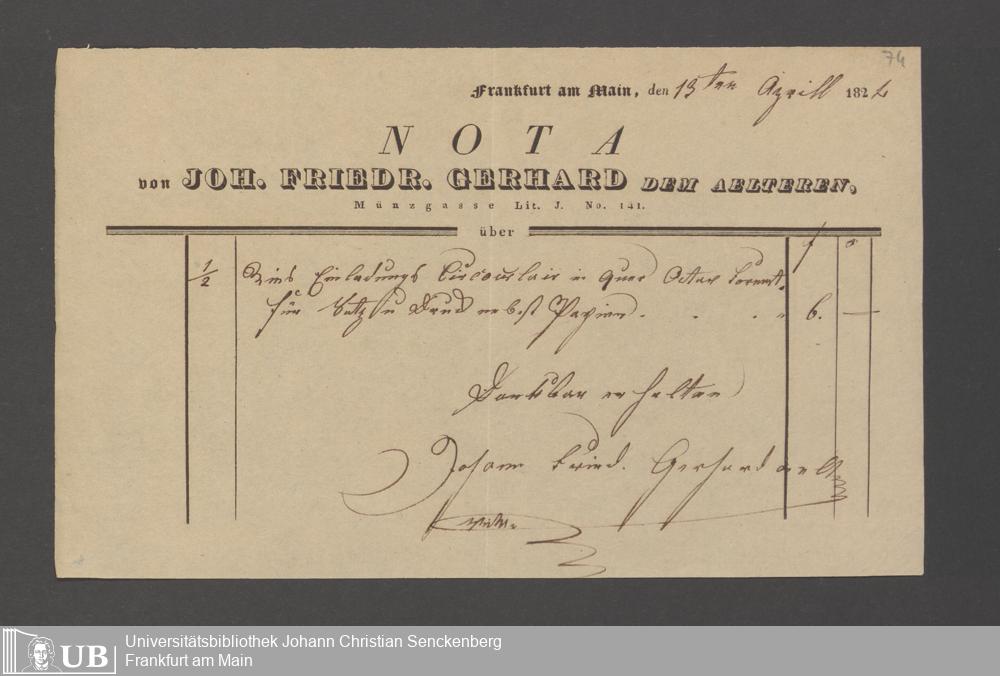 74
Frankfurt am Main, den 13ten Aprill 1824
NOTA
von JOH. FRIEDR. GERHARD DEM AELTEREN,
Münzgasse Lit. J. No. 141.
über
1/2 Einladungs Circulair in quer Octav Format
für Satz u Druck nebst Papier . . . . 6. —
Dankbar erhalten
Johann Fried. Gerhard
UB Universitätsbibliothek Johann Christian Senckenberg
Frankfurt am Main